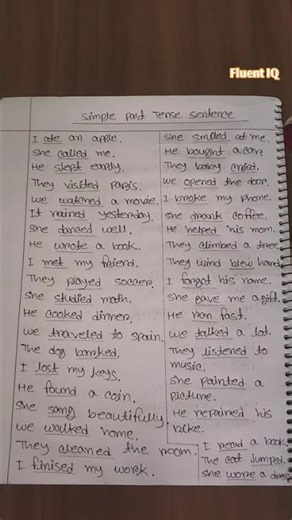 Fluent IQ
Simple Past Tense Sentence
I ate an apple.
She called me.
He slept early.
They visited Paris.
We watched a movie.
It rained yesterday.
She danced well.
He wrote a book.
I met my friend.
They played soccer.
She studied math.
He cooked dinner.
We traveled to spain.
The dog barked.
I lost my keys.
He found a coin.
She sang beautifully
We walked home.
They cleaned the room.
I finised my work.
She smiled at me.
He bought a car.
They baby cried.
We opened the door.
I broke my phone.
She drank coffee.
He helped his mom.
They climbed a tree.
They wind blew hard
I forgot his name.
She gave me a gift.
He ran fast.
We talked a lot.
They listened to
music.
She painted a
picture.
He repaired his
bike.
I read a book
The cat jumped.
She wore a dress